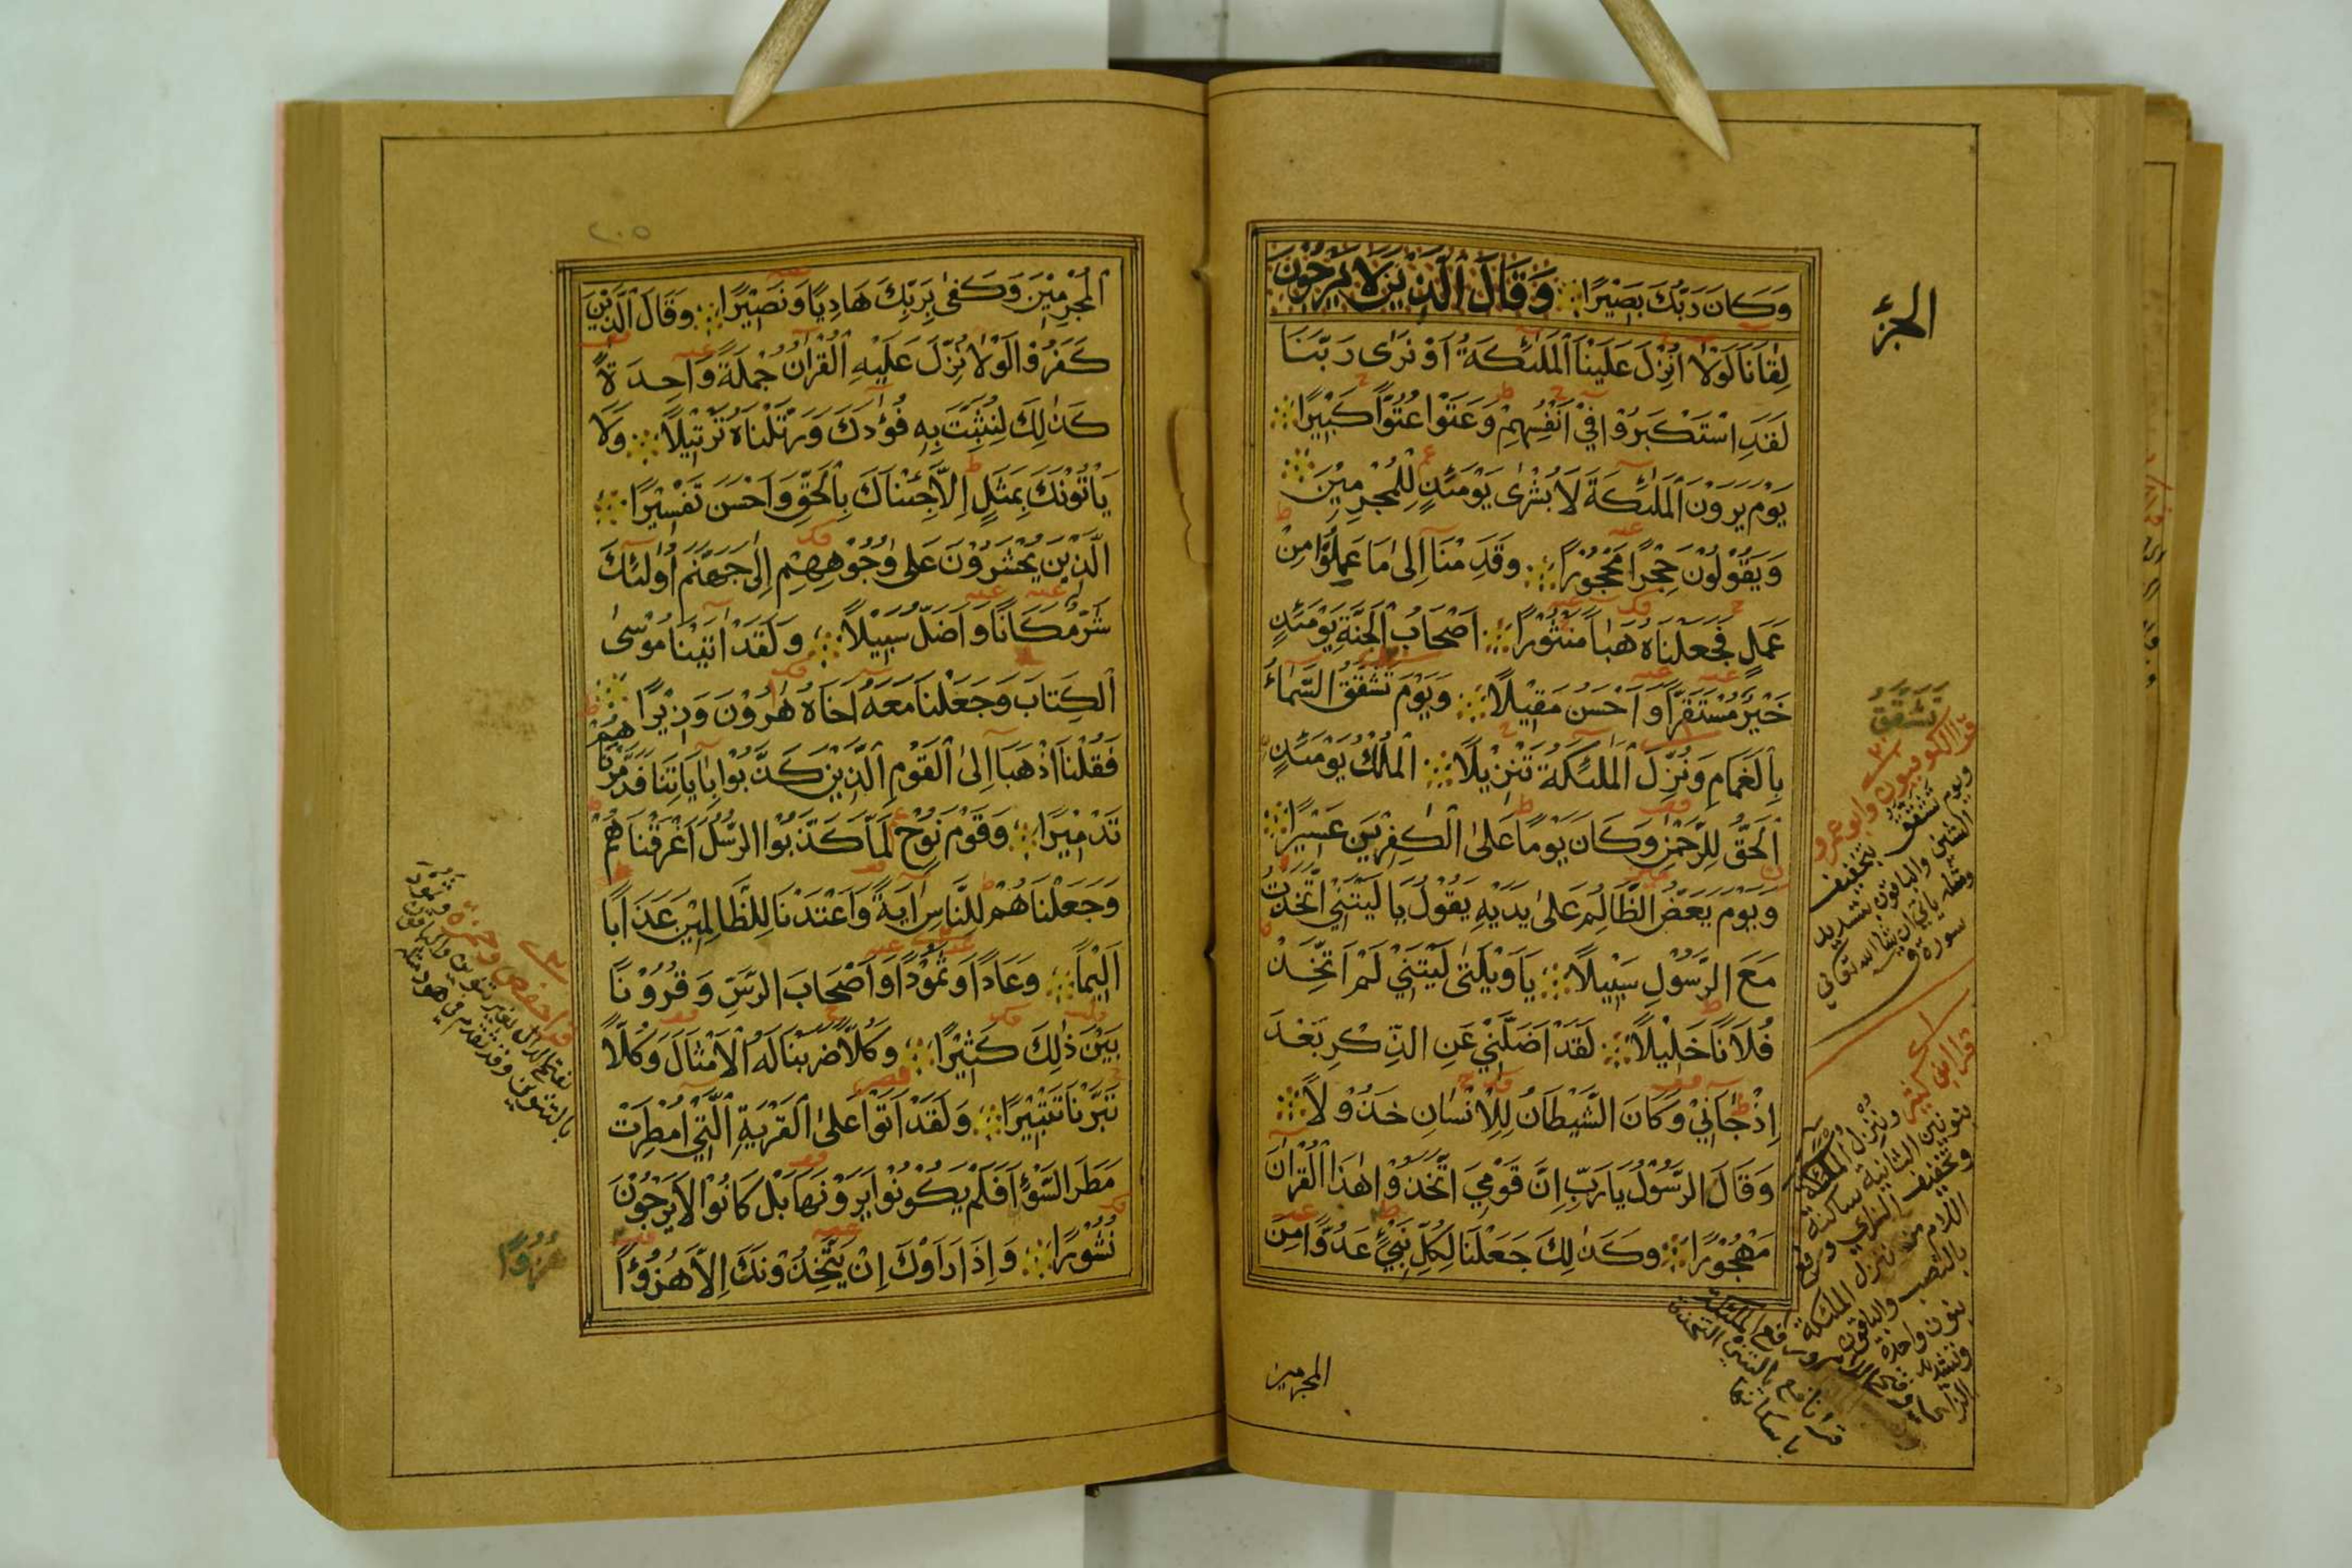 وَكَانَ رَبُّكَ بَصِيْرًا وَقَالَ الَّذِيْنَ لَا يَرْجُونَ
لِقَانَا لَوْلَا اُنْزِلَ عَلَيْنَا الْمَلٰئِكَةُ اَوْ نَرٰى رَبَّنَا
لَقَدِ اسْتَكْبَرُوْا فِيْ اَنْفُسِهِمْ وَعَتَوْا عُتُوًّا كَبِيْرًا
يَوْمَ يَرَوْنَ الْمَلٰئِكَةَ لَا بُشْرٰى يَوْمَئِذٍ لِلْمُجْرِمِيْنَ
وَيَقُوْلُوْنَ حِجْرًا مَحْجُوْرًا وَقَدِمْنَا اِلٰى مَا عَمِلُوْا مِنْ
عَمَلٍ فَجَعَلْنَاهُ هَبَاً مَنْثُوْرًا اَصْحَابُ الْجَنَّةِ يَوْمَئِذٍ
خَيْرٌ مُسْتَقَرًّا وَاَحْسَنُ مَقِيْلًا وَيَوْمَ تَشَقَّقُ السَّمَاءُ
بِالْغَمَامِ وَنُزِّلَ الْمَلٰئِكَةُ تَنْزِيْلًا الْمُلْكُ يَوْمَئِذٍ
الْحَقُّ لِلرَّحْمٰنِ وَكَانَ يَوْمًا عَلَى الْكٰفِرِيْنَ عَسِيْرًا
وَيَوْمَ يَعَضُّ الظَّالِمُ عَلٰى يَدَيْهِ يَقُوْلُ يَا لَيْتَنِيْ اتَّخَذْتُ
مَعَ الرَّسُوْلِ سَبِيْلًا يَا وَيْلَتٰى لَيْتَنِيْ لَمْ اَتَّخِذْ
فُلَانًا خَلِيْلًا لَقَدْ اَضَلَّنِيْ عَنِ الذِّكْرِ بَعْدَ
اِذْ جَانِيْ وَكَانَ الشَّيْطَانُ لِلْاِنْسَانِ خَذُوْلًا
وَقَالَ الرَّسُوْلُ يَا رَبِّ اِنَّ قَوْمِيَ اتَّخَذُوْا هٰذَا الْقُرْاٰنَ
مَهْجُوْرًا وَكَذٰلِكَ جَعَلْنَا لِكُلِّ نَبِيٍّ عَدُوًّا مِنَ
المجرمين
الجزء
تَشَّقَّقُ
قرا الكوفيون وابو عمرو
ويوم تشقق بتخفيف
الشين والباقون بتشديد
ومثله ياتي ان شا الله تعالي
سورة ق
قرا ابن كثير وننزل الملئكة
بنونين الثانية ساكنة
وتخفيف الزاي ورفع
اللام من ننزل الملئكة
بالنصب والباقون
بنون واحدة
وتشديد
٢٠٥
الْمُجْرِمِيْنَ وَكَفٰى بِرَبِّكَ هَادِيًا وَنَصِيْرًا وَقَالَ الَّذِيْنَ
كَفَرُوْا لَوْلَا نُزِّلَ عَلَيْهِ الْقُرْاٰنُ جُمْلَةً وَاحِدَةً
كَذٰلِكَ لِنُثَبِّتَ بِهِ فُؤَادَكَ وَرَتَّلْنَاهُ تَرْتِيْلًا وَلَا
يَاْتُوْنَكَ بِمَثَلٍ اِلَّا جِئْنَاكَ بِالْحَقِّ وَاَحْسَنَ تَفْسِيْرًا
الَّذِيْنَ يُحْشَرُوْنَ عَلٰى وُجُوْهِهِمْ اِلٰى جَهَنَّمَ اُولٰئِكَ
شَرٌّ مَكَانًا وَاَضَلُّ سَبِيْلًا وَلَقَدْ اٰتَيْنَا مُوْسٰى
الْكِتَابَ وَجَعَلْنَا مَعَهُ اَخَاهُ هٰرُوْنَ وَزِيْرًا
فَقُلْنَا اذْهَبَا اِلَى الْقَوْمِ الَّذِيْنَ كَذَّبُوْا بِاٰيَاتِنَا فَدَمَّرْنَاهُمْ
تَدْمِيْرًا وَقَوْمَ نُوْحٍ لَمَّا كَذَّبُوا الرُّسُلَ اَغْرَقْنَاهُمْ
وَجَعَلْنَاهُمْ لِلنَّاسِ اٰيَةً وَاَعْتَدْنَا لِلظَّالِمِيْنَ عَذَابًا
اَلِيْمًا وَعَادًا وَثَمُوْدًا وَاَصْحَابَ الرَّسِّ وَقُرُوْنًا
بَيْنَ ذٰلِكَ كَثِيْرًا وَكُلًّا ضَرَبْنَا لَهُ الْاَمْثَالَ وَكُلًّا
تَبَّرْنَا تَتْبِيْرًا وَلَقَدْ اَتَوْا عَلَى الْقَرْيَةِ الَّتِيْ اُمْطِرَتْ
مَطَرَ السَّوْءِ اَفَلَمْ يَكُوْنُوْا يَرَوْنَهَا بَلْ كَانُوْا لَا يَرْجُوْنَ
نُشُوْرًا وَاِذَا رَاَوْكَ اِنْ يَتَّخِذُوْنَكَ اِلَّا هُزُؤًا
قرا حفص وحمزة وثمود
بفتح الدال بغير تنوين والباقون
بالتنوين وقد تقدم في هود مثله
هُزُوًا